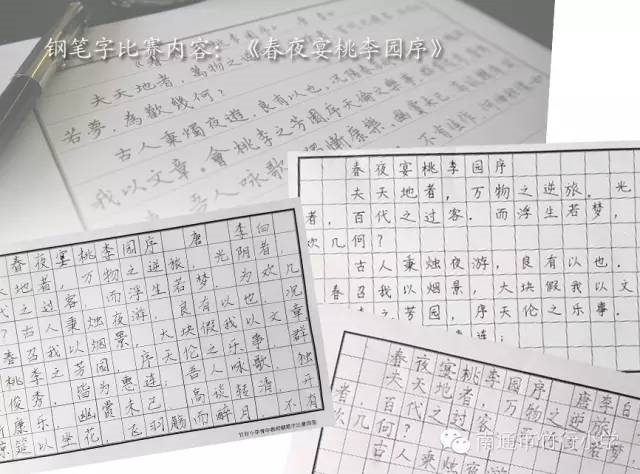 钢笔字比赛内容：《春夜宴桃李园序》
夫天地者，萬物之
若夢，為歡幾何？
古人秉燭夜遊，良有以也，況陽春
我以文章。會桃李之芳園，序天倫之樂事。
吾人咏歌
春夜宴桃李园序
夫天地者，万物之逆旅，光
者，百代之过客。而浮生若梦，
欢几何？
古人秉烛夜游，良有以也。
春召我以烟景，大块假我以文
之芳园，序天伦之乐事。
连；
春夜宴桃李园序 唐 李白
天地者，万物之逆旅，光阴者，
代之过客，而浮生若梦，为欢几
？古人秉烛夜游，良有以也，况
春召我以烟景，大块假我以文章
桃李之芳园，序天伦之乐事，群
俊秀，皆为惠连；吾人咏歌，独
康乐，幽赏未已，高谈转清，开
琼筵以坐花，飞羽觞而醉月，不有
春夜宴桃李园序 唐 李白
夫天地者，万物之逆旅
者，百代之过客，而
欢几何？
古人秉烛夜
南通市仔仔小学